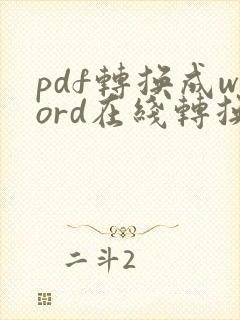 pdf轉換成w
ord在綫轉換
二斗2